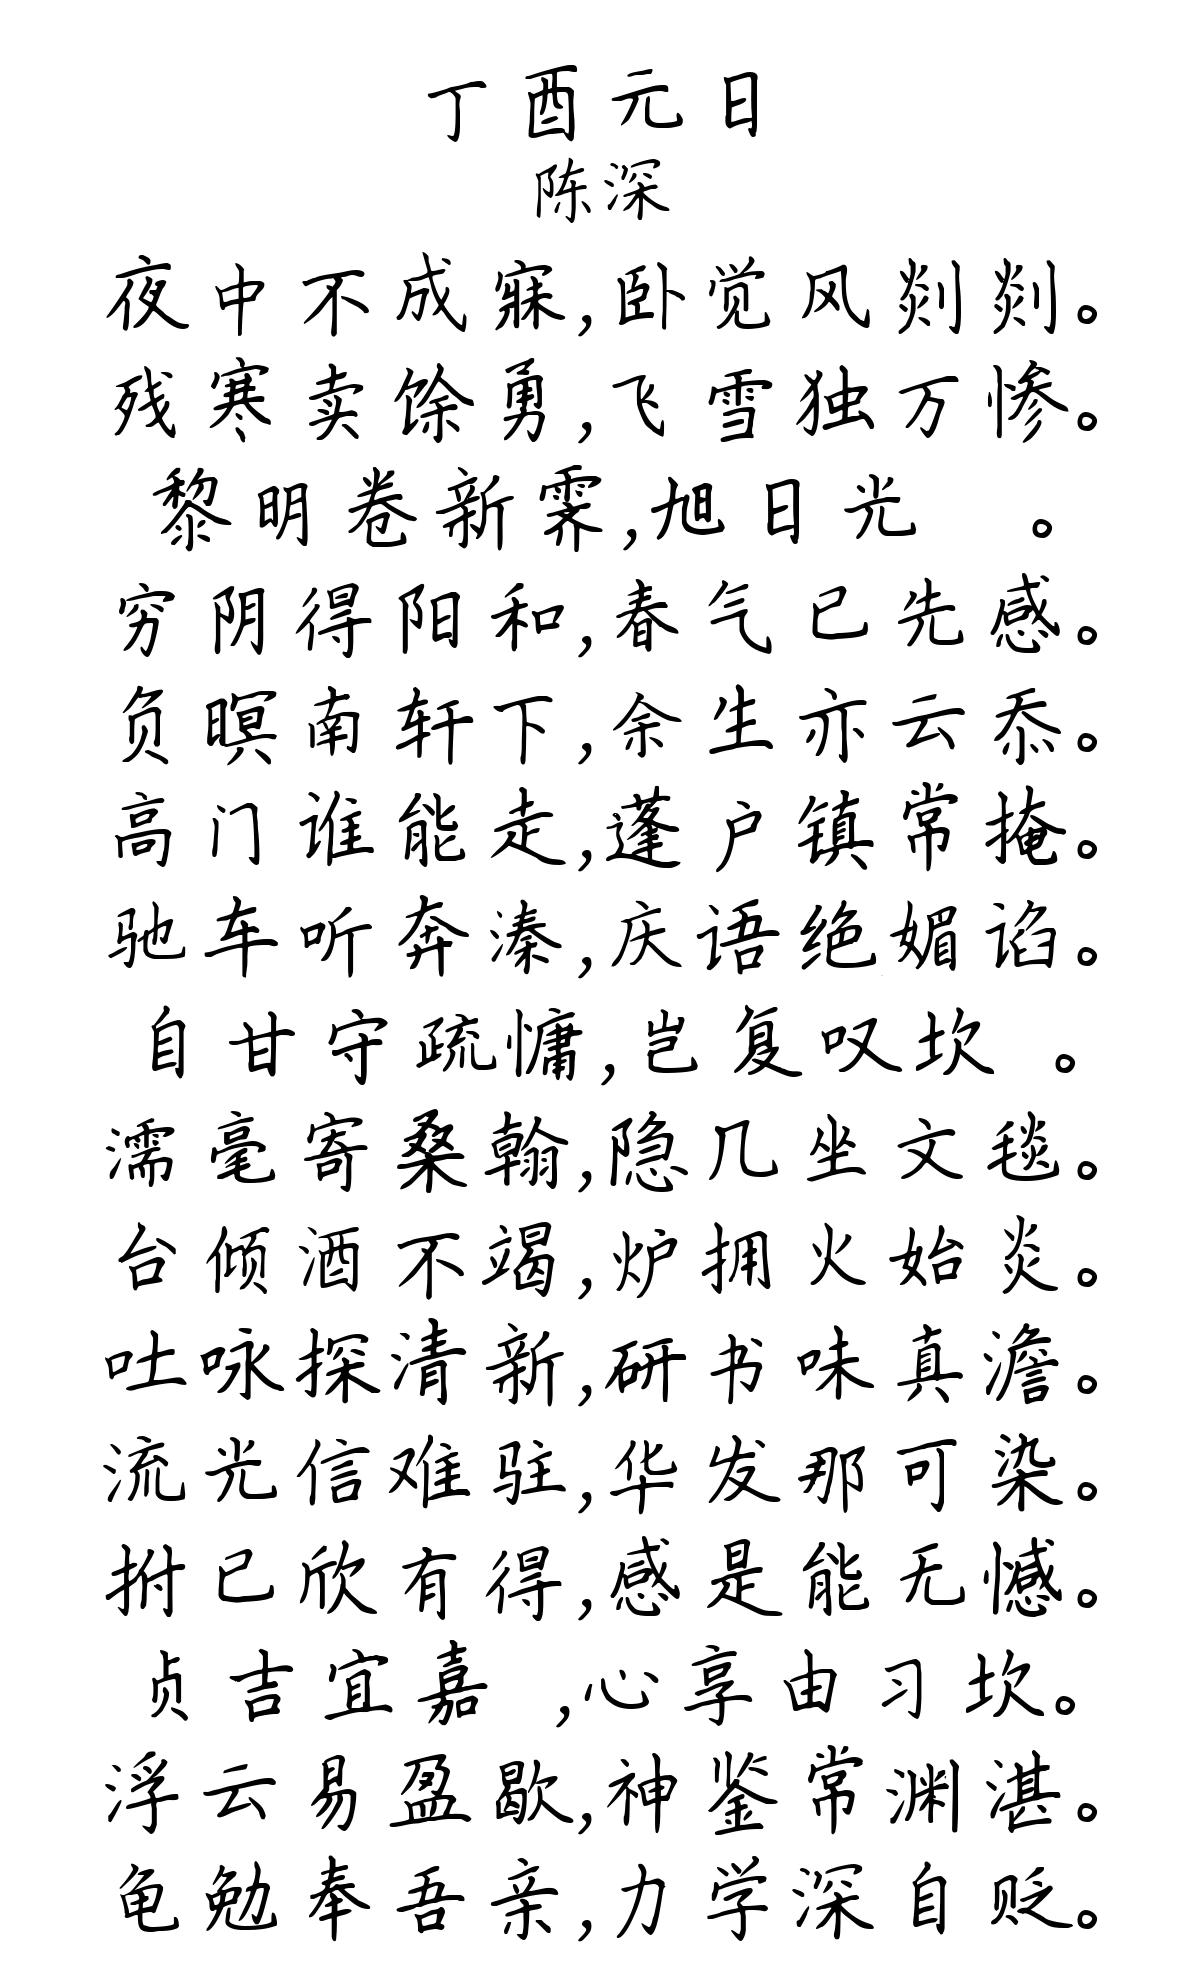 丁酉元日
陈深
夜中不成寐,卧觉风剡剡。
残寒卖馀勇,飞雪独万惨。
黎明卷新霁,旭日光 。
穷阴得阳和,春气已先感。
负暝南轩下,余生亦云忝。
高门谁能走,蓬户镇常掩。
驰车听奔溱,庆语绝媚谄。
自甘守疏慵,岂复叹坎 。
濡毫寄桑翰,隐几坐文毯。
台倾酒不竭,炉拥火始炎。
吐咏探清新,研书味真澹。
流光信难驻,华发那可染。
拊已欣有得,感是能无憾。
贞吉宜嘉 ,心享由习坎。
浮云易盈歇,神鉴常渊湛。
黾勉奉吾亲,力学深自贬。